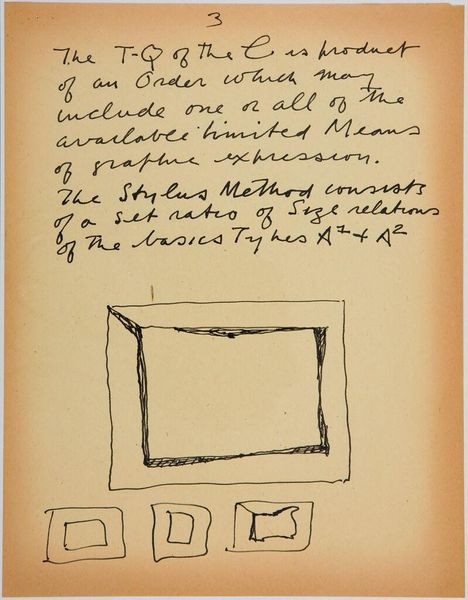 3
The T-Q of the C is product
of an Order which may
include one or all of the
available limited Means
of graphic expression.
The Stylus Method consists
of a set ratio of Size relations
of the basics Types A¹ + A²